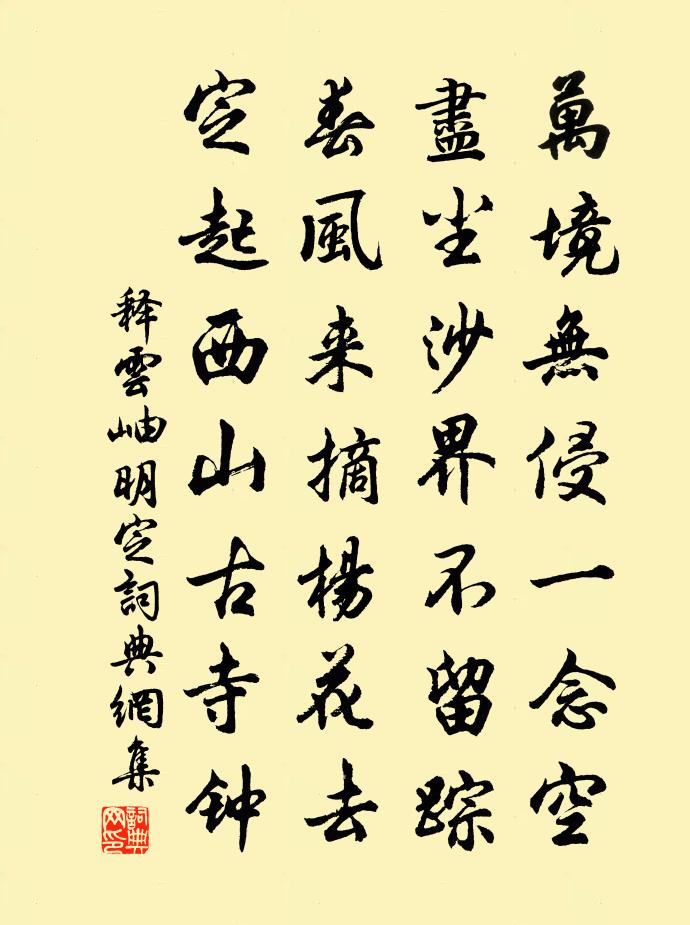 萬境無侵一念空
盡尘沙界不留踪
春風来摘楊花去
定起西山古寺钟
释雲岫明定詞典網集
詞典網印